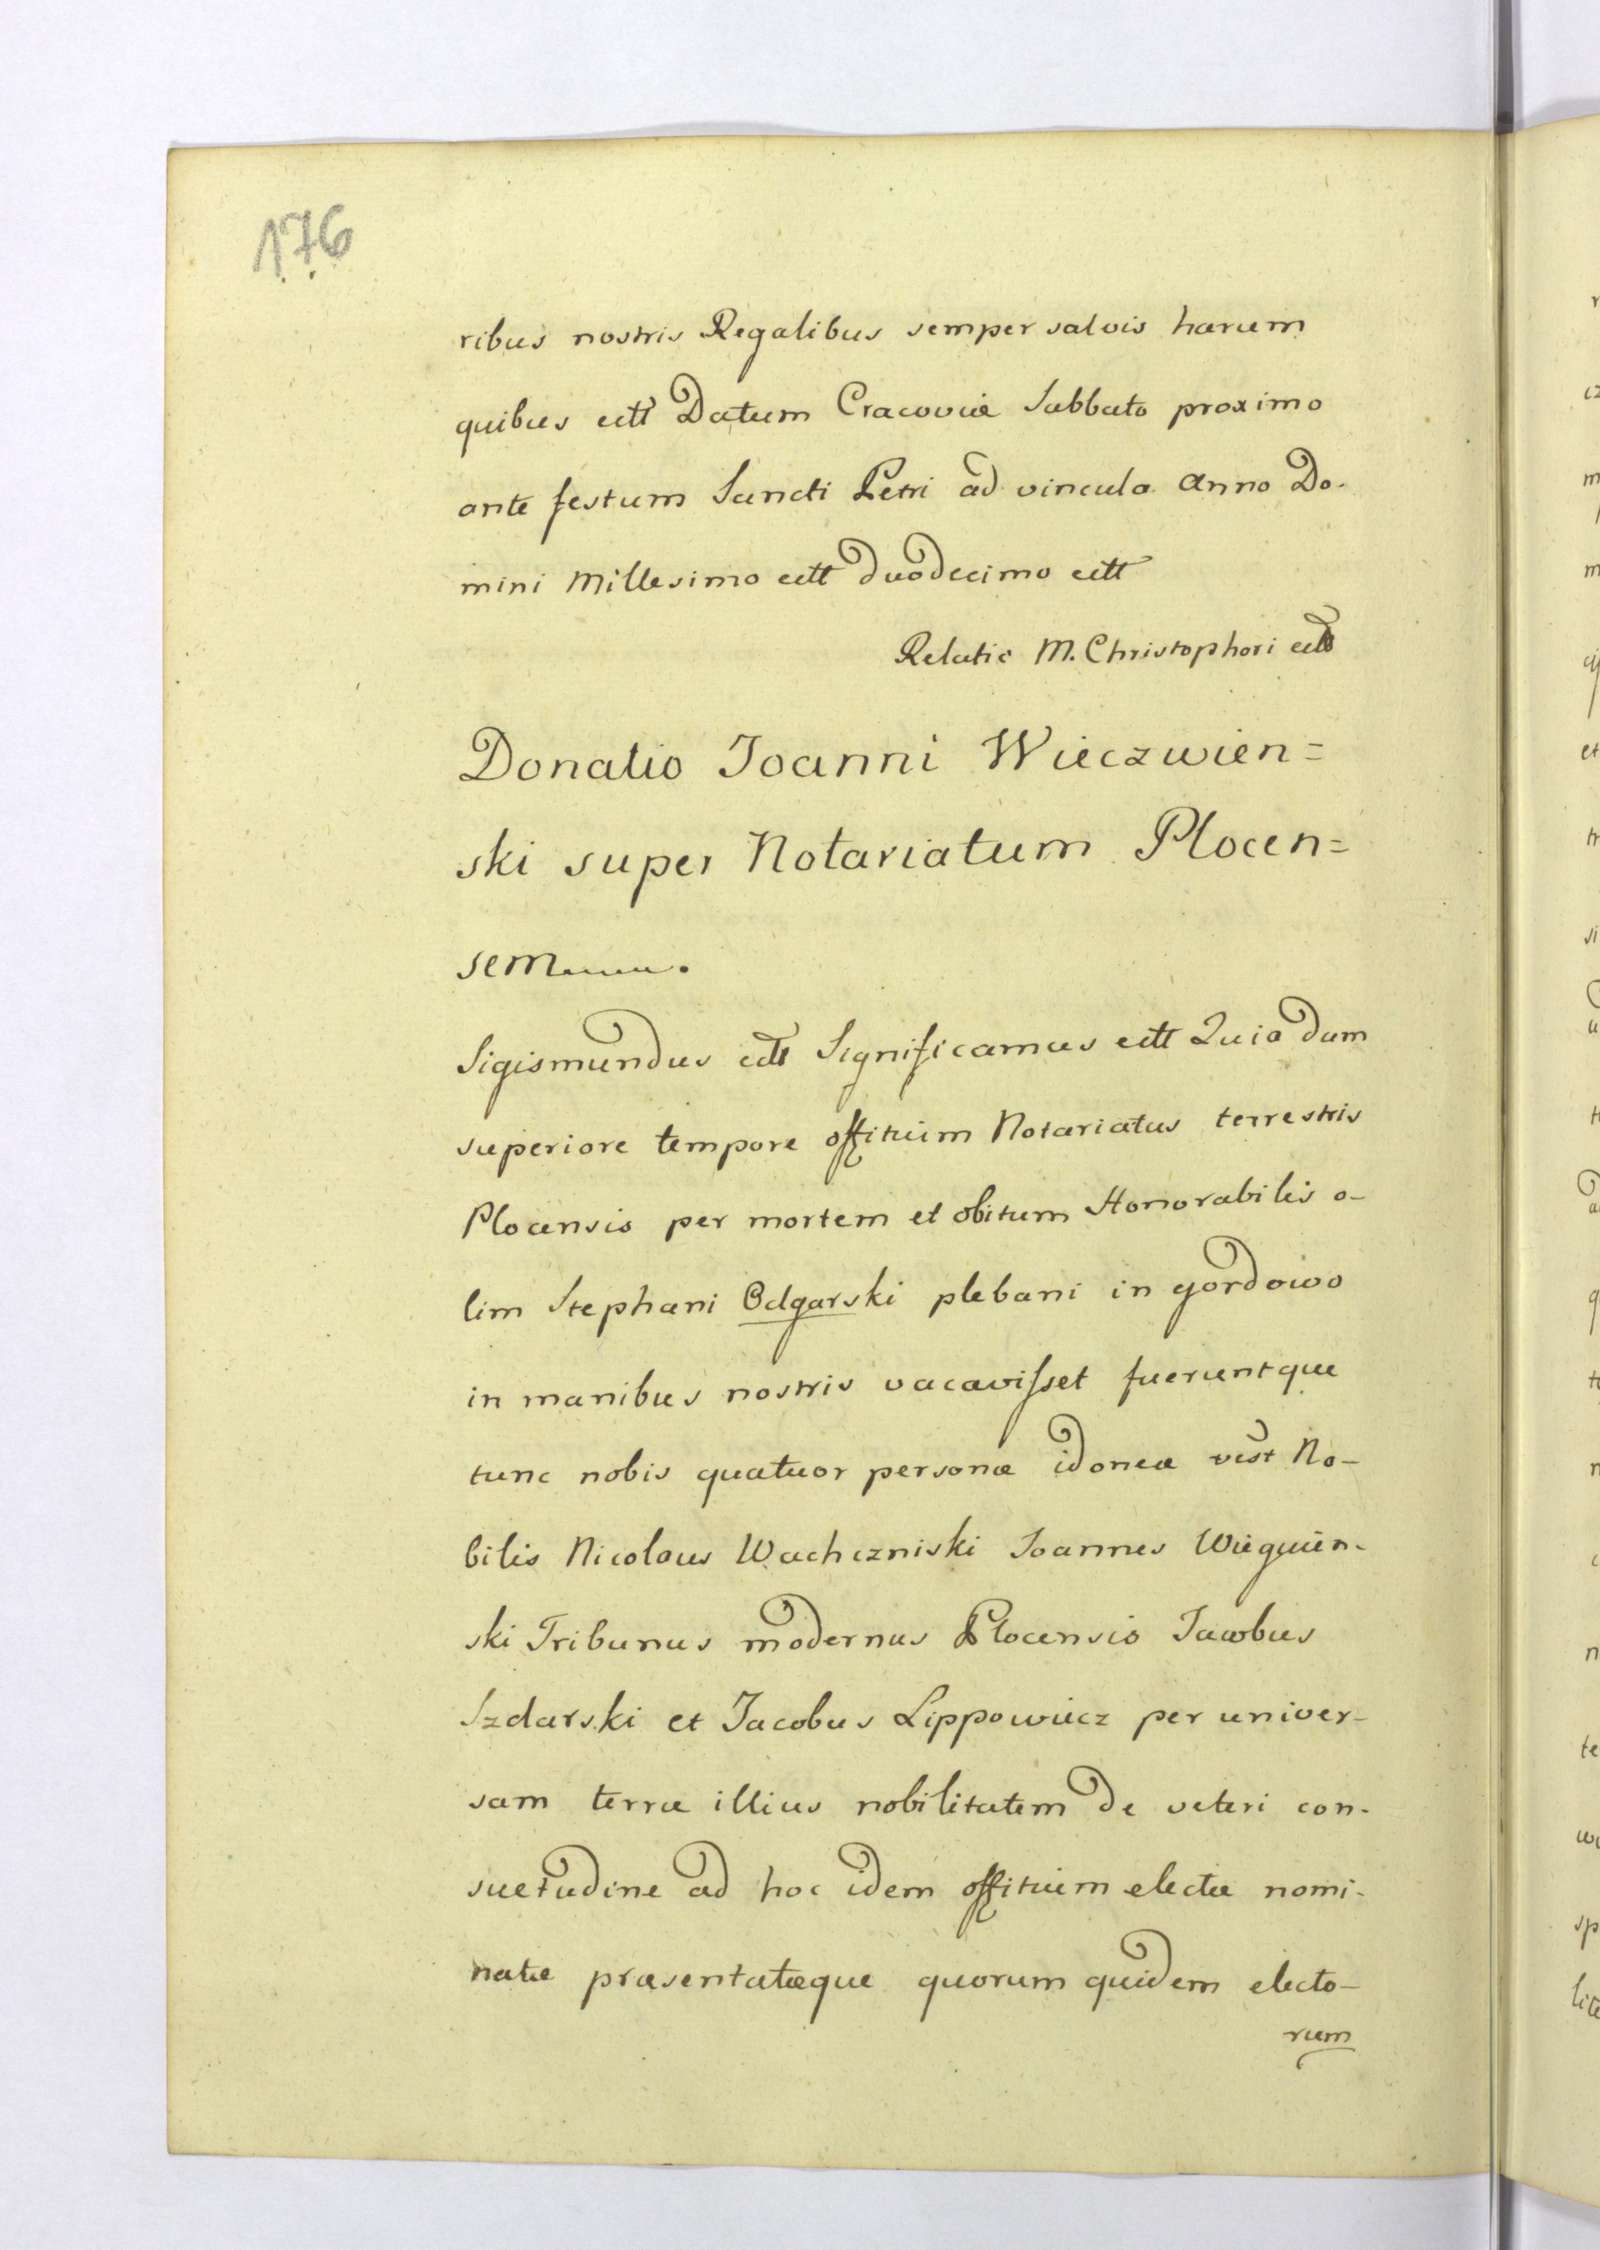 176
ribus nostris Regalibus semper salvis harum
quibus ectt Datum Cracoviæ Sabbato proximo
ante festum Sancti Petri ad vincula Anno Do-
mini Millesimo ectt duodecimo ectt
Relatio M. Christophori ectt
Donatio Joanni Wieczwien=
ski super Notariatum Plocen=
sem.
Sigismundus ectt Significamus ectt Quia dum
superiore tempore offitium Notariatus terrestris
Plocensis per mortem et obitum Honorabilis o-
lim Stephani Odgarski plebani in gordowo
in manibus nostris vacavisset fueruntque
tunc nobis quatuor personæ idoneæ vest No-
bilis Nicolaus Wachczniski Joannes Wiegwien-
ski Tribunus modernus Plocensis Jacobus
Szdarski et Jacobus Lippowiecz per univer-
sam terræ illius nobilitatem de veteri con-
suetudine ad hoc idem offitium electæ nomi-
natæ præsentatæque quorum quidem electo-
rum